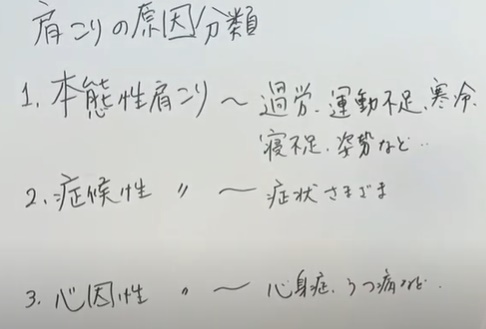 肩こりの原因分類
1. 本態性肩こり ～ 過労、運動不足、寒冷、
寝不足、姿勢など‥
2. 症候性 〃 ～ 症状さまざま
3. 心因性 〃 ～ 心身症、うつ病など‥